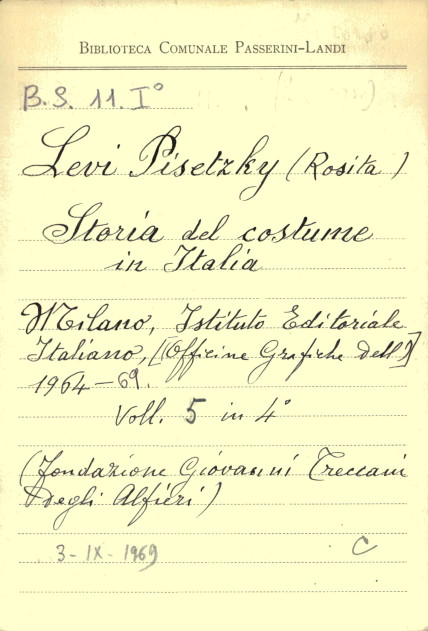 BIBLIOTECA COMUNALE PASSERINI-LANDI
B.S. 11. I°
Levi Pisetzky (Rosita)
Storia del costume
in Italia
Milano, Istituto Editoriale
Italiano, [(Officine Grafiche Dell')]
1964-69.
Voll. 5 in 4°
(Fondazione Giovanni Treccani
degli Alfieri)
3-IX-1969 C